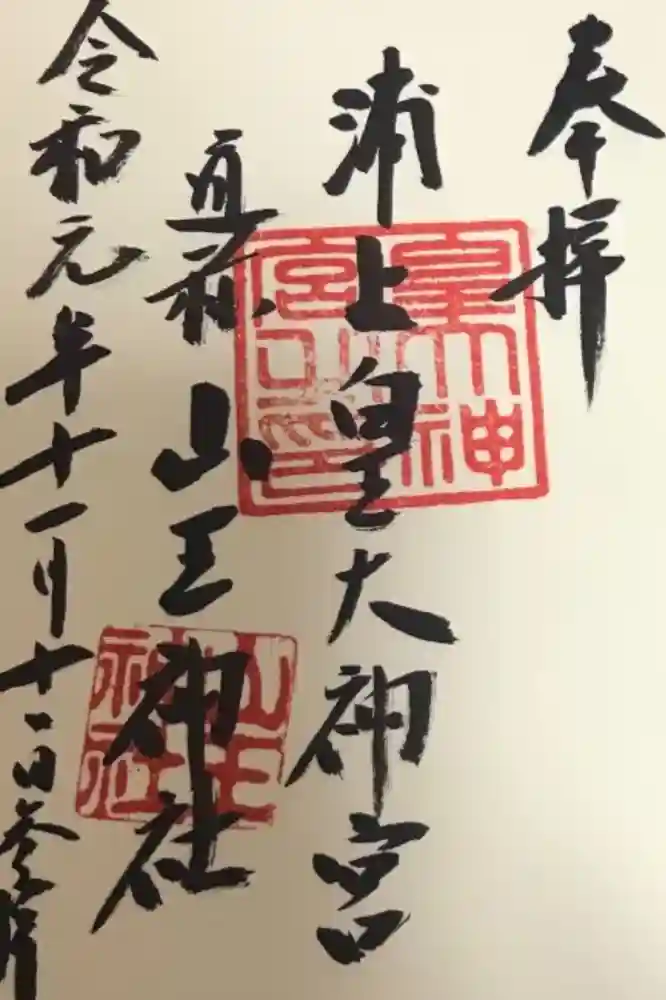 奉拝
浦上皇大神宮
山王神社
令和元年十一月十一日参拝
皇大神
宮之印
山王
神社